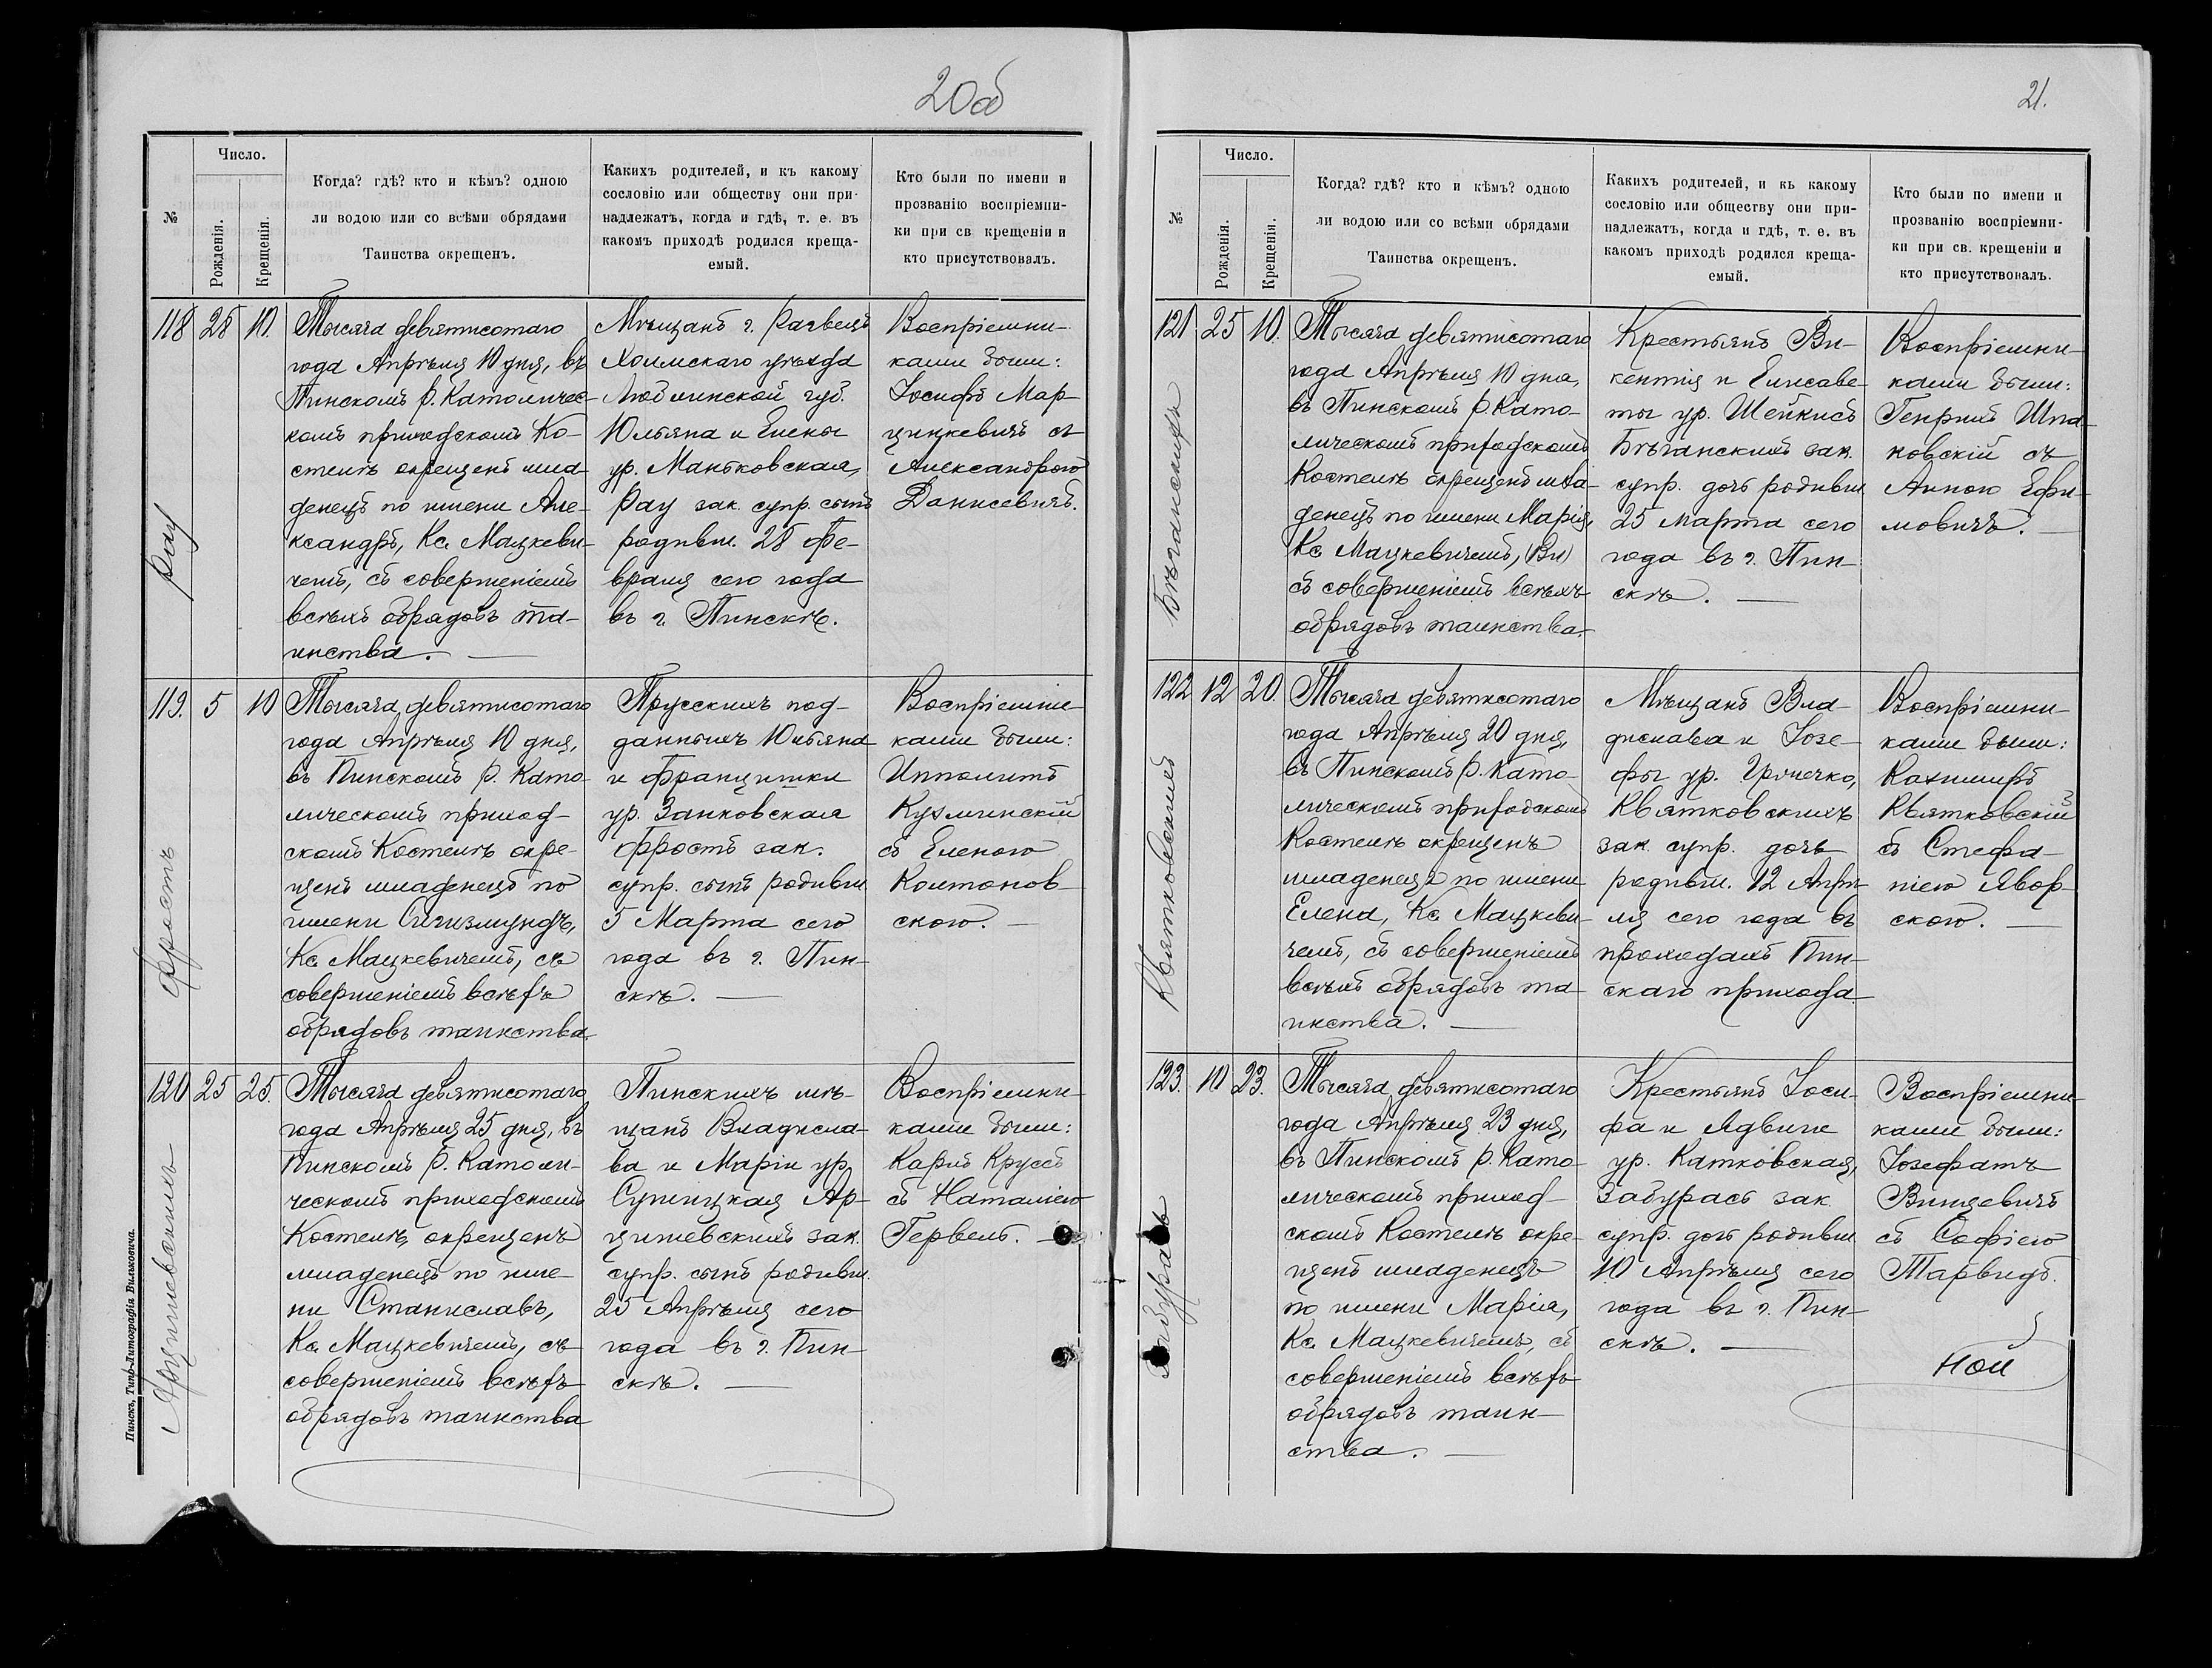 20об
№
Число.
Рожденія.
Крещенія.
Когда? гдѣ? кто и кѣмъ? одною
ли водою или со всѣми обрядами
Таинства окрещенъ.
Каихъ родителей, и къ какому
сословію или обществу они при-
надлежатъ, когда и гдѣ, т. е. въ
какомъ приходѣ родился креща-
емый.
Кто были по имени и
прозванію воспріемни-
ки при св крещеніи и
кто присутствовалъ.
118 28 10.
Рау
Тысяча девятисотаго
года Апрѣля 10 дня, въ
Пинскомъ Р. Католичес-
комъ приходскомъ Ко-
стелѣ окрещенъ мла-
денецъ по имени Але-
ксандръ, Кс. Мацкеви-
чемъ, съ совершеніемъ
всѣхъ обрядовъ та-
инства. —
Мѣщанъ г.
Холмскаго уѣзда
Люблинской губ.
Юльяна и Елены
ур. Маньковская,
Рау зак. супр. сынъ
родивш. 28 Фе-
враля сего года
въ г. Пинскѣ.
Воспріемни-
ками были:
Іосифъ Мар-
цинкевичъ съ
Александрою
Данисевичъ.
119. 5 10
Фростъ
Тысяча девятисотаго
года Апрѣля 10 дня,
въ Пинскомъ Р. Като-
лическомъ приход-
скомъ Костелѣ окре-
щенъ младенецъ по
имени Сигизмундъ,
Кс. Мацкевичемъ, съ
совершеніемъ всѣхъ
обрядовъ таинства.
Прусскихъ под-
данныхъ Юльяна
и Францишки
ур. Занковская
Фростъ зак.
супр. сынъ родивш.
5 Марта сего
года въ г. Пин-
скѣ. —
Воспріемни-
ками были:
Ипполитъ
Кузминскій
съ Еленою
Колтонов-
скою. —
120 25 25.
Арцишевскихъ
Тысяча девятисотаго
года Апрѣля 25 дня, въ
Пинскомъ Р. Католи-
ческомъ приходскомъ
Костелѣ, окрещенъ
младенецъ по име-
ни Станиславъ,
Кс. Мацкевичемъ, съ
совершеніемъ всѣхъ
обрядовъ таинства
Пинскихъ мѣ-
щанъ Владисла-
ва и Маріи ур.
Супицкая Ар-
цишевскихъ зак.
супр. сынъ родивш.
25 Апрѣля сего
года въ г. Пин-
скѣ. —
Воспріемни-
ками были:
Карлъ Круссъ
съ Наталіею
Гервель. —
Пинскъ, Типо-Литографія Вильковича.
21.
№
Число.
Рожденія.
Крещенія.
Когда? гдѣ? кто и кѣмъ? одною
ли водою или со всѣми обрядами
Таинства окрещенъ.
Какихъ родителей, и къ какому
сословію или обществу они при-
надлежатъ, когда и гдѣ, т. е. въ
какомъ приходѣ родился креща-
емый.
Кто были по имени и
прозванію воспріемни-
ки при св. крещеніи и
кто присутствовалъ.
121 25 10.
Бѣганскихъ
Тысяча девятисотаго
года Апрѣля 10 дня,
въ Пинскомъ Р. Като-
лическомъ приходскомъ
Костелѣ окрещенъ мла-
денецъ по имени Марія,
Кс. Мацкевичемъ, (Ви)
съ совершеніемъ всѣхъ
обрядовъ таинства.
Крестьянъ Ви-
кентія и Елисаве-
ты ур. Шейкисъ
Бѣганскихъ зак.
супр. дочь родивш
25 марта сего
года въ г. Пин-
скѣ. —
Воспріемни-
ками были:
Генрихъ Шпа-
ковскій съ
Анною Ефи-
мовичъ. —
122 12 20.
Квятковскихъ
Тысяча девятисотаго
года Апрѣля 20 дня,
въ Пинскомъ Р. Като-
лическомъ приходскомъ
Костелѣ окрещенъ
младенецъ по имени
Елена, Кс. Мацкеви-
чемъ, съ совершеніемъ
всѣхъ обрядовъ та-
инства. —
Мѣщанъ Вла-
дислава и Юзе-
фы ур. Гринечко,
Квятковскихъ
зак. супр. дочь
родивш. 12 Апрѣ-
ля сего года въ
Пин-
скаго прихода
Воспріемни-
ками были:
Казимиръ
Квятковскій
съ Стефа-
ніею Явор-
скою. —
123. 10 23.
Забурасъ
Тысяча девятисотаго
года Апрѣля 23 дня,
въ Пинскомъ Р. Като-
лическомъ приход-
скомъ Костелѣ окре-
щенъ младенецъ
по имени Марія,
Кс. Мацкевичемъ, съ
совершеніемъ всѣхъ
обрядовъ таин-
ства. —
Крестьянъ Іоси-
фа и Ядвиги
ур. Катковская,
Забурасъ зак.
супр. дочь родивш
10 Апрѣля сего
года въ г. Пин-
скѣ. —
Воспріемни-
ками были:
Іозефатъ
Винцевичъ
съ Софіею
Тарвидъ.
Ной